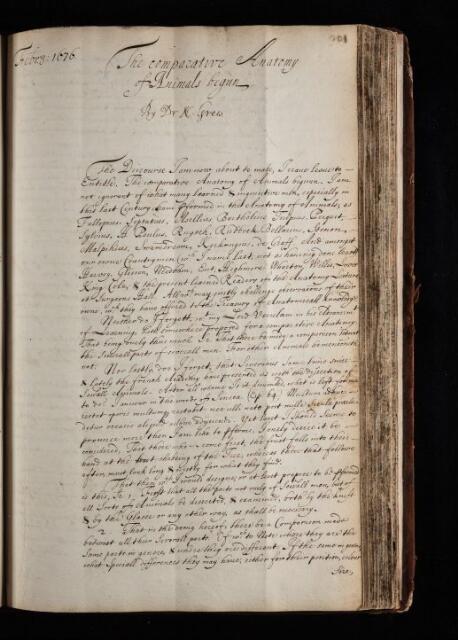 Febry: 1676
The comparative Anatomy
of Animals begun
By Dr N. Grew
The Discourse I am now about to make, I crave leave to
Entitle, The comparative Anatomy of Animals begun. I am
not ignorant of what many learned & inquisitive men, especially in
this last Century have pformed in the Anatomy of Animals; as
Fallopius, Aquapendens, Asellius Bartholine Pecquet,
Sylvius, Paulus, Ruysch, Rudbeck Bellinus, Stenon,
Malpighius, Swammerdam, Kerkringius, de Graff. And amongst
our owne Countrymen (wm I name last, not as having done least)
Harvey, Glisson, Needham, Ent, Highmore Wharton, Willis, Lower
King, Coles, & the present learned Reader of the Anatomy Lecture
at Surgeons Hall. All wm may justly challenge observations of their
owne, wch they have offered to the Treasury of Anatomicall knowledge
Neither do I forgett, wt my Lord Verulam in his Advancemt
of Learning hath somewhere proposed for a comparative Anatomy.
That being only thus much
the severall parts of severall men. For other Animals he mentioneth
not.
Nor lastly do I forget, that Severinus Some time since
& lately the french Academy have presented us with the dissection of
Severall Animals. After all whom it is demanded, what is left for me
to do? I answer in the words of Seneca (Ep. 64.) Multum adhuc
restat operis multumq restabit nec ulli nato post mille Secula
occasio aliquid adhuc adijciendi. Yet least I should Seeme to
pmise more then I am like to pforme, I only desire it be
considered, That those who come first, the fruit falls into their
hand at the first shaking of the Tree, whereas those that follow
after, must look long & hardly for what they find.
That then wch I would designe, or at least propose to be pformed
is this, 1. First that all the parts not only of Severall men, but of
all Sorts of Animals be disected, & examined, both by the knife
& by the Glasse or any other way as shall be necessary.
2. That in the doing hereof, there be a Comparison made
betweext all their Severall parts. To note where they are the
Same parts in genere, & where they are different. If the same in genere
what Speciall differences they may have, either for their position, colour
Size,